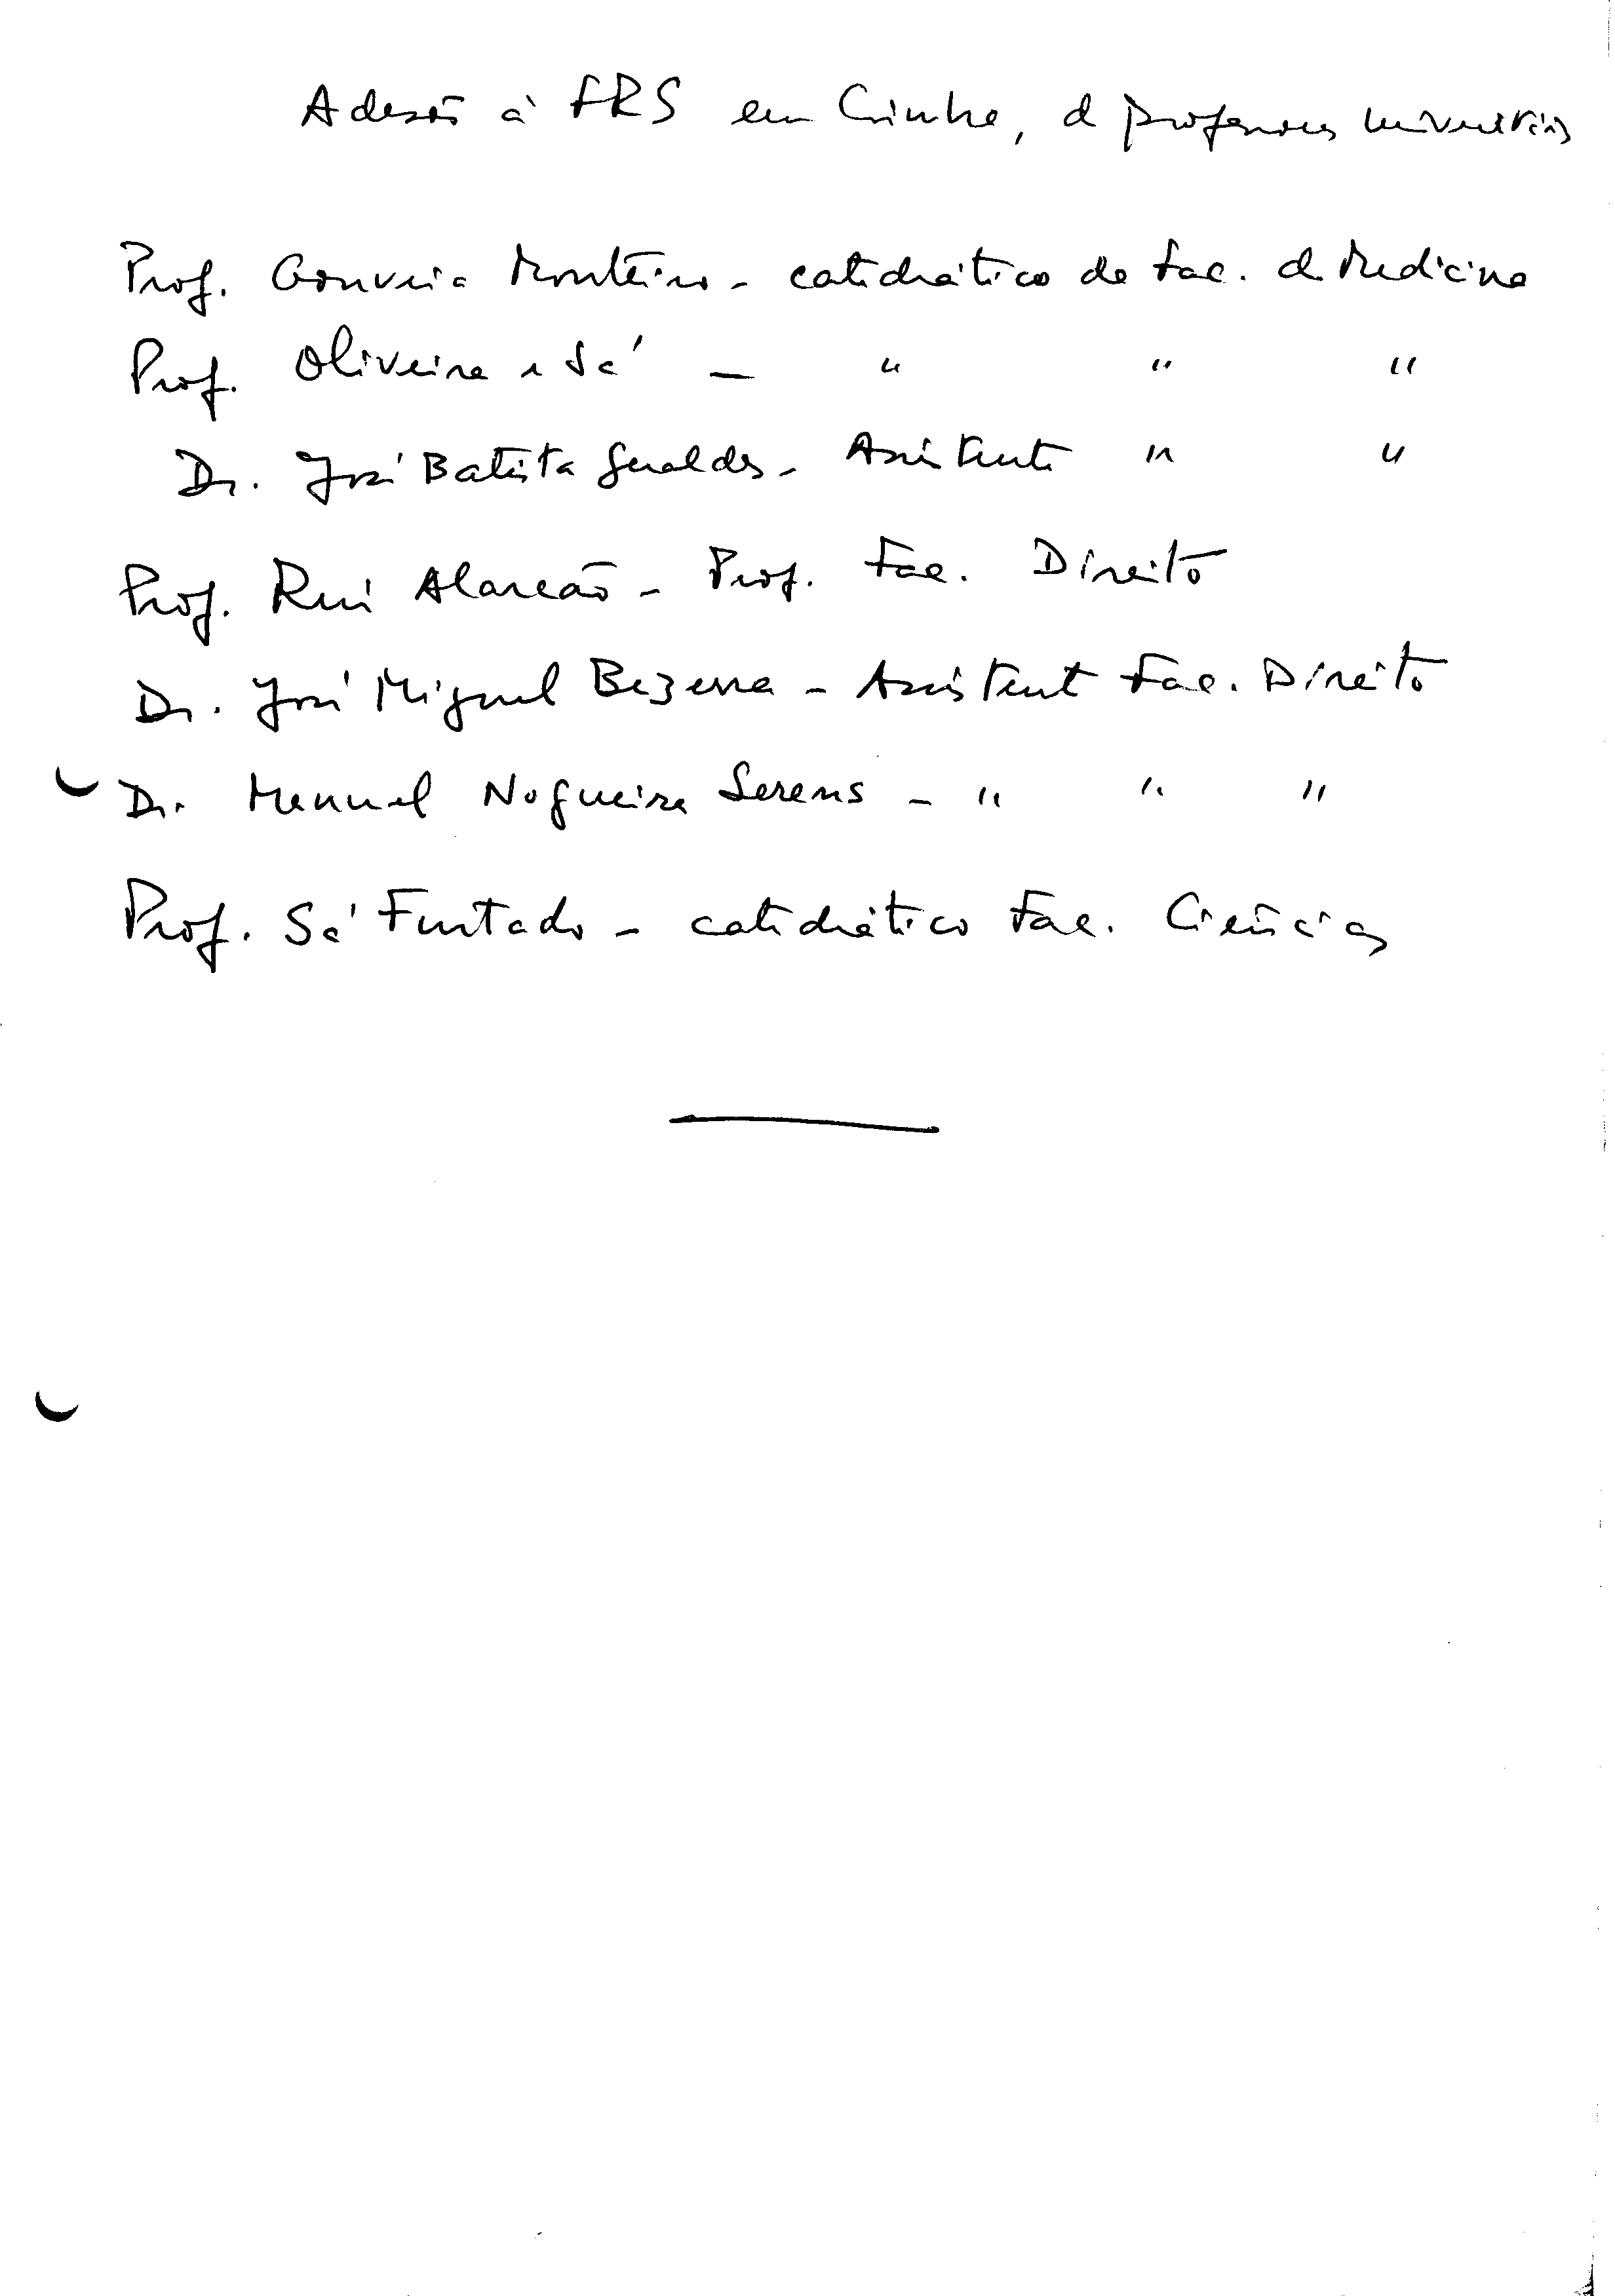 Adesão à FRS em Coimbra, de professores universitários
Prof. Gouveia Monteiro - catedrático da Fac. de Medicina
Prof. Oliveira e Sá - " " "
Dr. José Batista Geraldes - Assistente " "
Prof. Rui Alarcão - Prof. Fac. Direito
Dr. José Miguel Bezerra - Assistente Fac. Direito
Dr. Manuel Nogueira Serens - " " "
Prof. Sá Furtado - catedrático Fac. Ciências